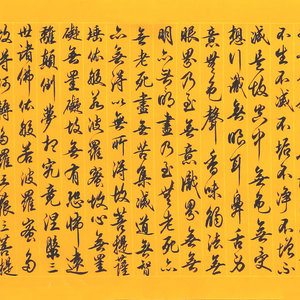 不生不滅不垢不淨不增不
減是故空中無色無受
想行識無眼耳鼻舌身
意無色聲香味觸法無
眼界乃至無意識界無
明亦無無明盡乃至無老死亦
無老死盡無苦集滅道無智
亦無得以無所得故菩提薩
埵依般若波羅蜜故心無罣
礙無罣礙故無有恐怖遠
離顛倒夢想究竟涅槃三
世諸佛依般若波羅蜜多
故得阿耨多羅三藐三菩提